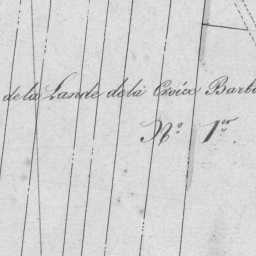 de la Lande de la Croix Barb
N.o 1.er